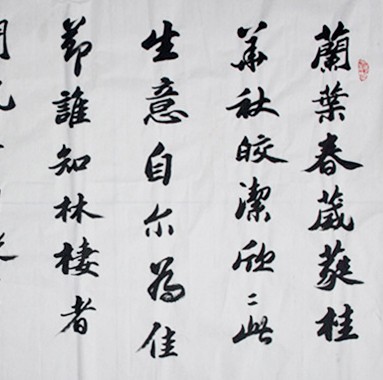 蘭葉春葳蕤桂
華秋皎潔欣〻此
生意自尔為佳
節誰知林棲者